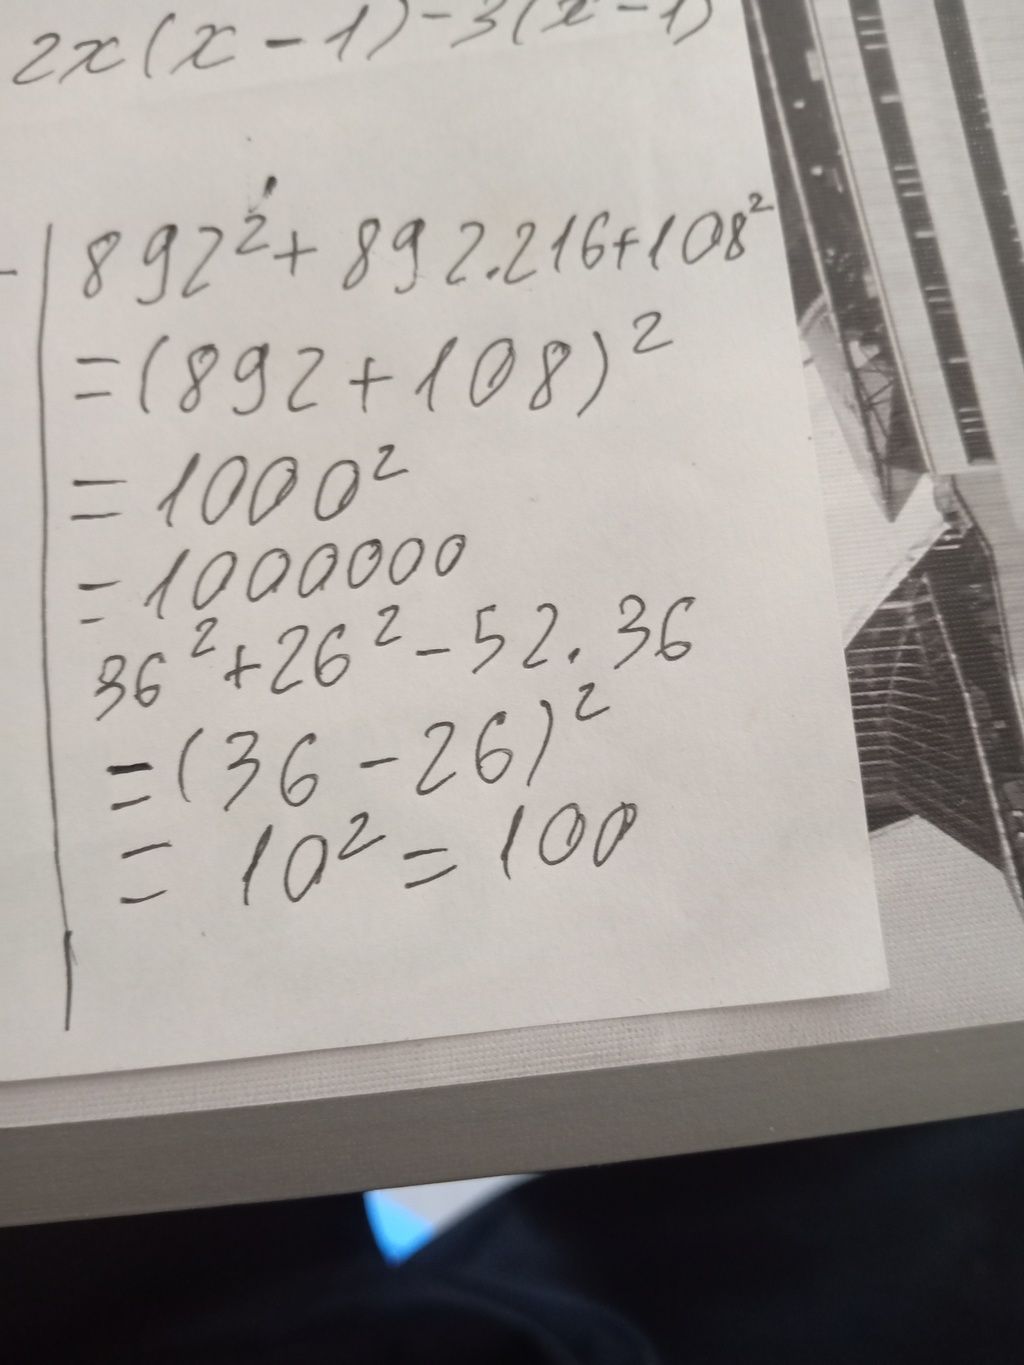 2x(x-1)-3(x-1)
892²+892.216+108²
=(892+108)²
=1000²
=1000000
36²+26²-52.36
=(36-26)²
= 10²=100